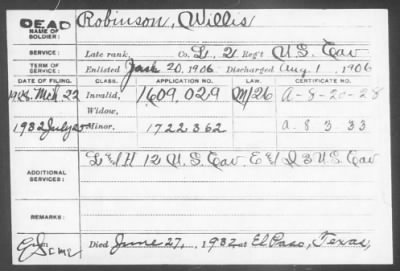 DEAD Robinson, Willis
NAME OF SOLDIER:
SERVICE: Late rank, Co. L, 2 Reg't U.S. Cav
TERM OF SERVICE: Enlisted 20, 1906 Discharged Aug 1, 1906
DATE OF FILING. CLASS. APPLICATION NO. LAW. CERTIFICATE NO.
Mch 22 Invalid, 1609,029 M/26 A-8-20-28
Widow,
1932 July 25 Minor, 1722362 a 8 3-33
ADDITIONAL SERVICES: L & H 12 U.S. Cav. E & I 8 U.S. Cav
REMARKS:
Died June 27, 1932 at El Paso, Texas,